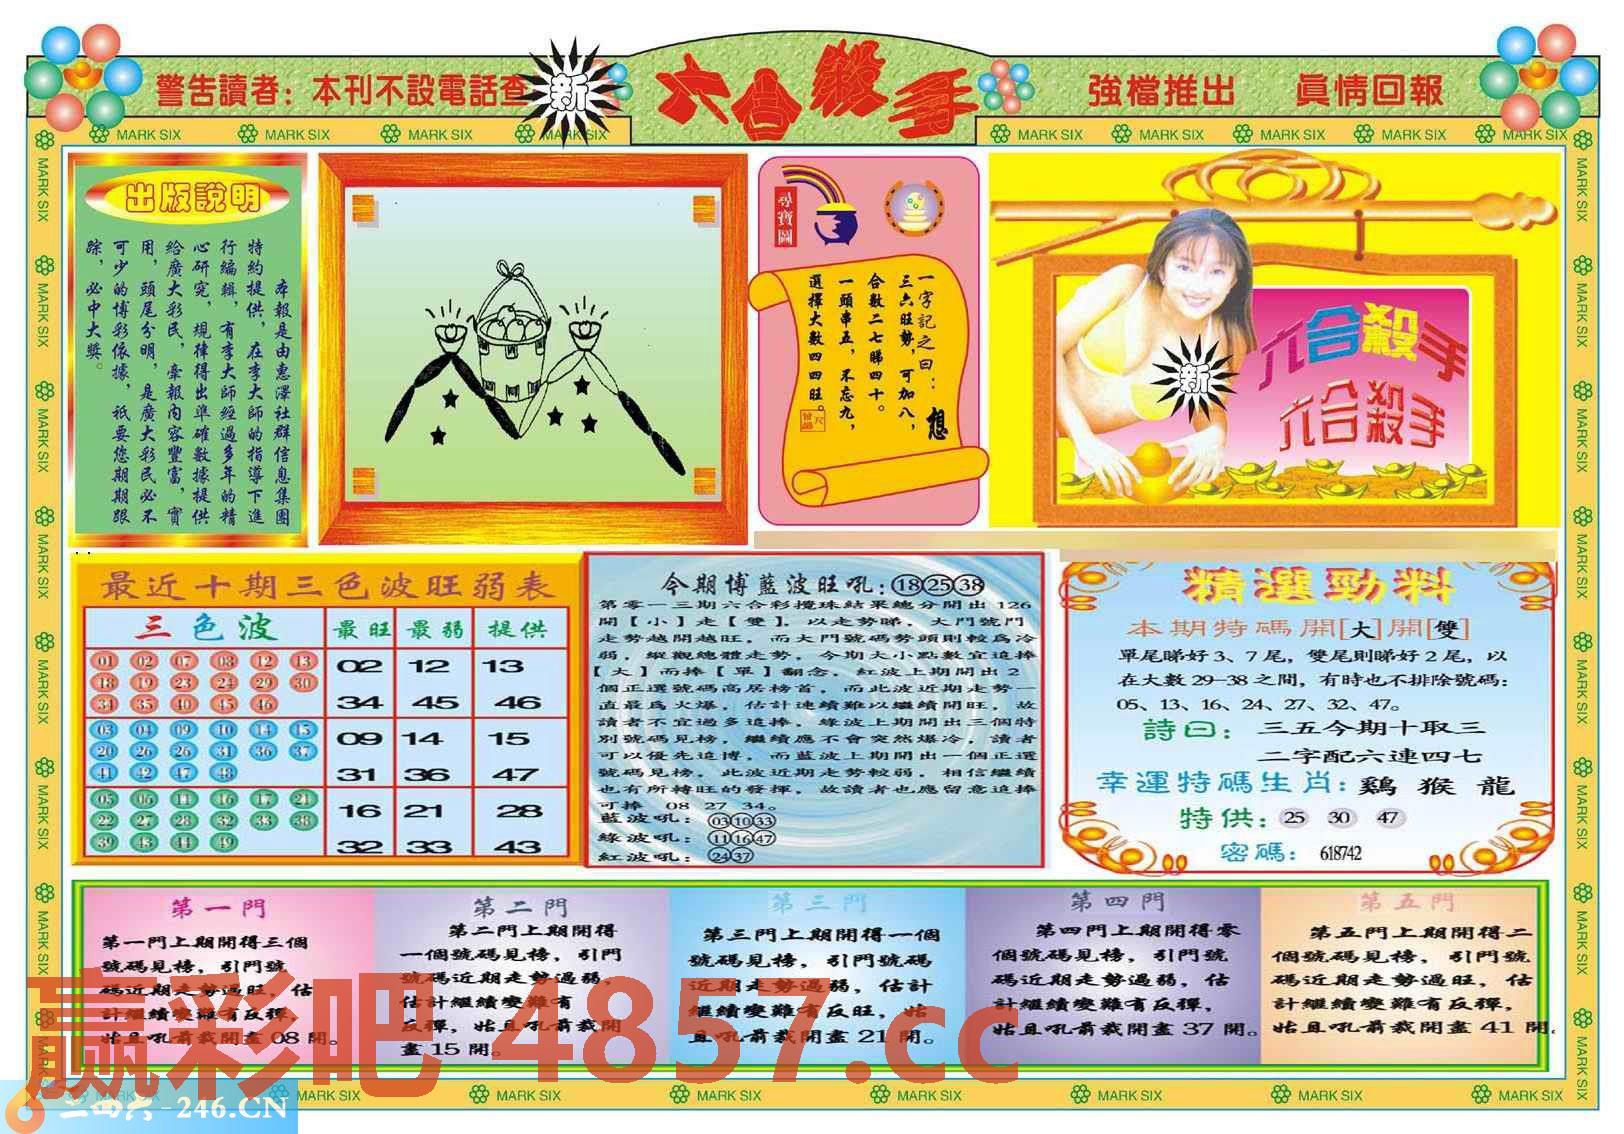 警告讀者：本刊不設電話查
新
六合殺手
強檔推出 眞情回報
MARK SIX
MARK SIX
MARK SIX
MARK SIX
MARK SIX
MARK SIX
MARK SIX
MARK SIX
MARK SIX
出版說明
本報是由惠澤社群信息集團
特約提供，在李大師的指導下進
行編輯，有李大師經過多年的精
心研究，規律得出準確數據提供
給廣大彩民，牽報內容豐富，實
用，頭尾分明，是廣大彩民必不
可少的博彩依據，祇要您期期跟
踪，必中大獎。
尋寶圖
一字記之曰：想
三六旺勢，可加八，
合數二七睇四十。
一頭串五，不忘九，
選擇大數四四旺。
六合殺手
新
六合殺手
最近十期三色波旺弱表
三色波 最旺 最弱 提供
01 02 07 08 12 13
18 19 23 24 29 30
34 35 40 45 46
02 12 13
34 45 46
03 04 09 10 14 15
20 26 26 31 36 37
41 42 47 48
09 14 15
31 36 47
05 06 11 16 17 21
22 27 28 32 33 38
39 43 44 49
16 21 28
32 33 43
今期博藍波旺吼：18 25 38
第零一三期六合彩攪珠結果總分開出 126
開【小】走【雙】，以走勢睇，大門號門
走勢越開越旺，而大門號碼勢頭則較為冷
弱，縱觀總體走勢，今期大小點數宜追捧
【大】而捧【單】翻念，紅波上期開出 2
個正選號碼高居榜首，而此波近期走勢一
直最爲火爆，估計連續難以繼續開旺，故
讀者不宜過多追捧，綠波上期開出三個特
別號碼見榜，繼續應不會突然爆冷，讀者
可以優先追博，而藍波上期開出一個正選
號碼見榜，此波近期走勢較弱，相信繼續
也有所轉旺的發揮，故讀者也應留意追捧
可捧 08 27 34。
藍波吼：03 10 33
綠波吼：11 16 47
紅波吼：24 37
精選勁料
本期特碼開[大]開[雙]
單尾睇好 3、7 尾，雙尾則睇好 2 尾，以
在大數 29—38 之間，有時也不排除號碼：
05、13、16、24、27、32、47。
詩曰：三五今期十取三
二字配六連四七
幸運特碼生肖：鷄 猴 龍
特供：25 30 47
密碼：618742
第一門
第一門上期開得三個
號碼見榜，引門號
碼近期走勢過旺，估
計繼續變難有反彈，
姑且吼前裁開盡 08 開。
第二門
第二門上期開得
一個號碼見榜，引門
號碼近期走勢過弱，
估計繼續變難有
反彈，姑且吼前裁開
盡 15 開。
第三門
第三門上期開得一個
號碼見榜，引門號碼
近期走勢過弱，估計
繼續變難有反旺，姑
且吼前裁開盡 21 開。
第四門
第四門上期開得零
個號碼見榜，引門號
碼近期走勢過弱，估
計繼續變難有反彈，
姑且吼前裁開盡 37 開。
第五門
第五門上期開得二
個號碼見榜，引門號
碼近期走勢過旺，估
計繼續變難有反彈，
姑且吼前裁開盡 41 開。
赢彩吧 4857.cc
二四六-246.CN
MARK SIX
MARK SIX
MARK SIX
MARK SIX
MARK SIX
MARK SIX
MARK SIX